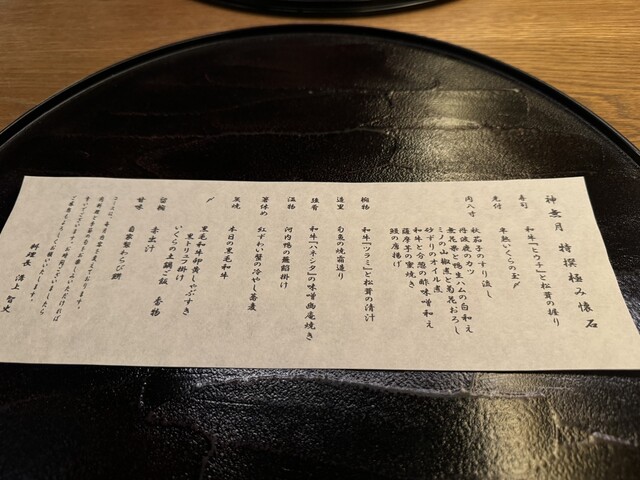 神無月 特撰極み懐石
寿司 和牛「ヒウチ」と松茸の握り
先付 半熟いくらの玉〆
肉八寸 秋茄子のすり流し
丹波鹿のカツ
無花果と鴨生ハムの白和え
ミノの山椒煮と菊花おろし
砂ずりのオイル煮
和牛と分葱の酢味噌和え
薩摩芋の蜜焼き
鮭の唐揚げ
椀物 和牛「ツラミ」と松茸の清汁
造里 旬魚の焼霜造り
強肴 和牛「ハネシタ」の味噌幽庵焼き
温物 河内鴨の饅頭 掛け
箸休め 紅ずわい蟹の冷やし蕎麦
炭焼 本日の黒毛和牛
〆 黒毛和牛卵黄しゃぶすき
黒トリュフ掛け
いくらの土鍋ご飯 香物
留椀 赤出汁
甘味 自家製わらび餅
料理長 溝上 智史